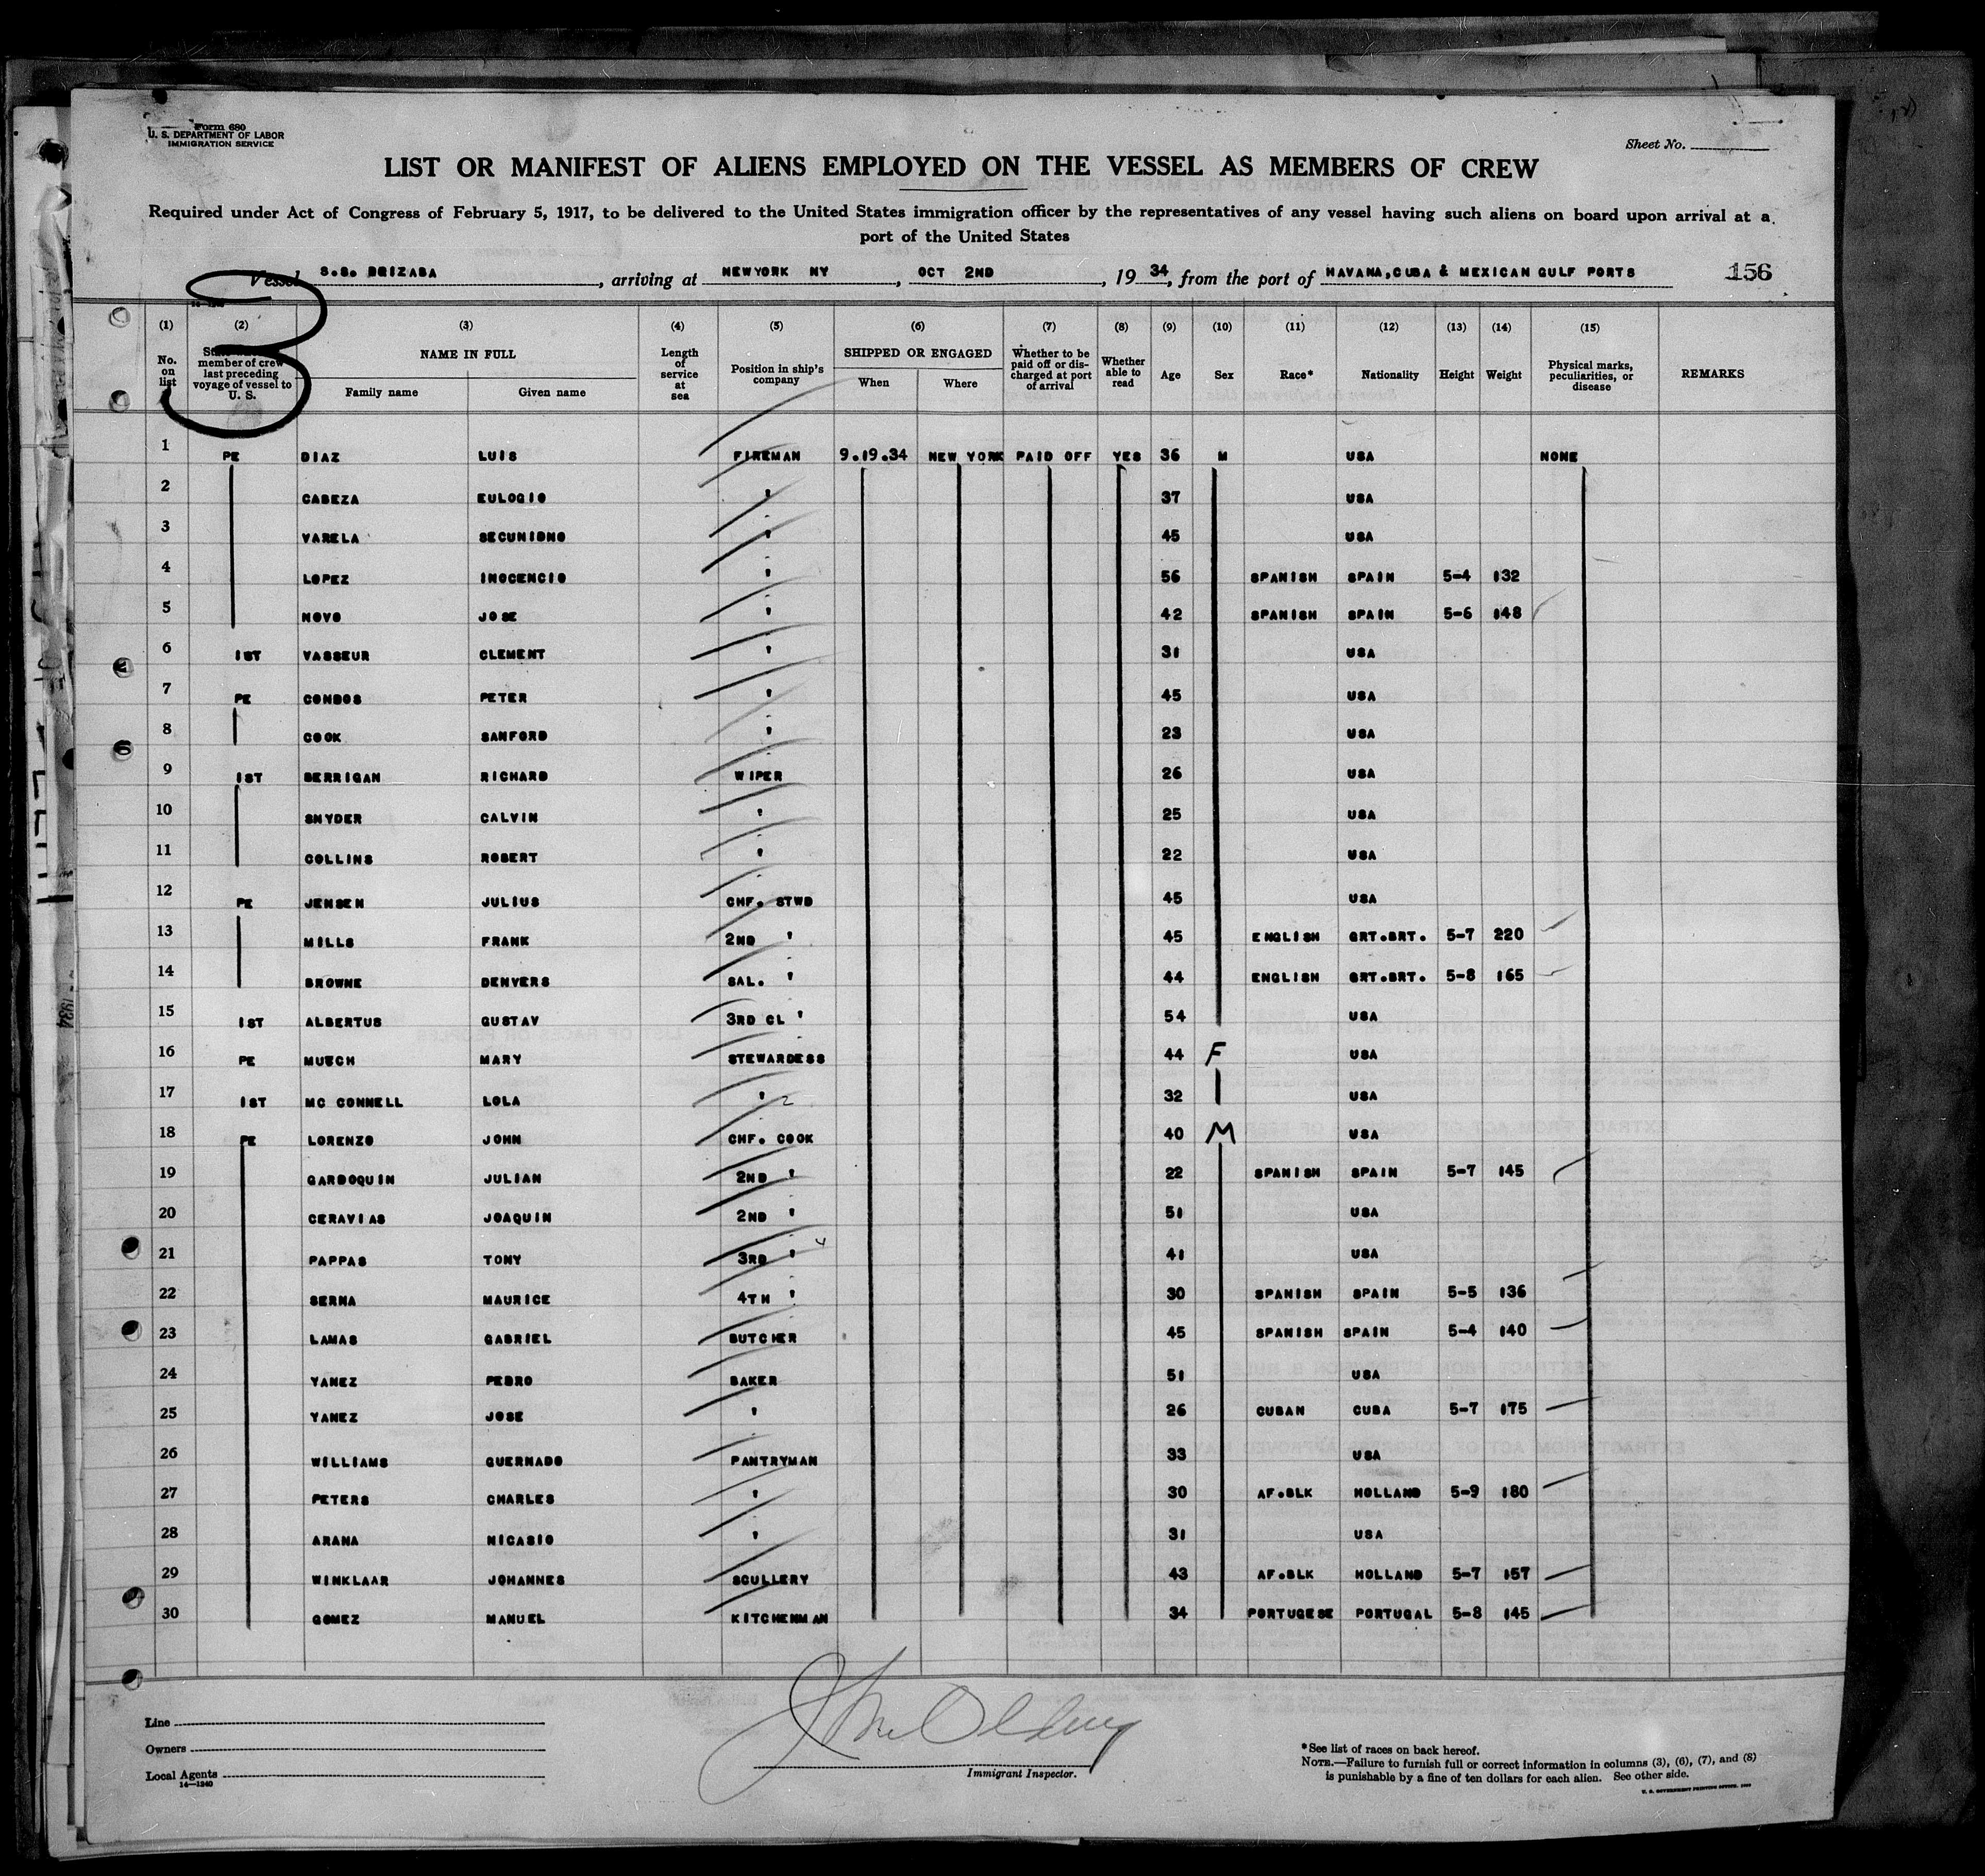 Form 680
U. S. DEPARTMENT OF LABOR
IMMIGRATION SERVICE
Sheet No.
LIST OR MANIFEST OF ALIENS EMPLOYED ON THE VESSEL AS MEMBERS OF CREW
Required under Act of Congress of February 5, 1917, to be delivered to the United States immigration officer by the representatives of any vessel having such aliens on board upon arrival at a
port of the United States
Vessel S.S. ORIZABA, arriving at NEWYORK NY, OCT 2ND, 1934, from the port of HAVANA,CUBA & MEXICAN GULF PORTS 156
3
(1) (2) (3) (4) (5) (6) (7) (8) (9) (10) (11) (12) (13) (14) (15)
No. on list
member of crew last preceding voyage of vessel to U. S.
NAME IN FULL
Family name Given name
Length of service at sea
Position in ship's company
SHIPPED OR ENGAGED
When Where
Whether to be paid off or discharged at port of arrival
Whether able to read
Age Sex Race* Nationality Height Weight
Physical marks, peculiarities, or disease
REMARKS
1 PE DIAZ LUIS FIREMAN 9.19.34 NEW YORK PAID OFF YES 36 M USA NONE
2 CABEZA EULOGIO " 37 USA
3 VARELA SECUNIDNO " 45 USA
4 LOPEZ INOCENCIO " 56 SPANISH SPAIN 5-4 132
5 NOVO JOSE " 42 SPANISH SPAIN 5-6 148
6 1ST VASSEUR CLEMENT " 31 USA
7 PE CONDOS PETER " 45 USA
8 COOK SANFORD " 23 USA
9 1ST BERRIGAN RICHARD WIPER 26 USA
10 SNYDER CALVIN " 25 USA
11 COLLINS ROBERT " 22 USA
12 PE JENSEN JULIUS CHF. STWD 45 USA
13 MILLS FRANK 2ND " 45 ENGLISH GRT.BRT. 5-7 220
14 BROWNE DENVERS SAL. " 44 ENGLISH GRT.BRT. 5-8 165
15 1ST ALBERTUS GUSTAV 3RD CL " 54 USA
16 PE MUECH MARY STEWARDESS 44 F USA
17 1ST MC CONNELL LOLA " 2 32 USA
18 PE LORENZO JOHN CHF. COOK 40 M USA
19 GARDOQUIN JULIAN 2ND " 22 SPANISH SPAIN 5-7 145
20 CERAVIAS JOAQUIN 2ND " 51 USA
21 PAPPAS TONY 3RD " 4 41 USA
22 SERNA MAURICE 4TH " 30 SPANISH SPAIN 5-5 136
23 LAMAS GABRIEL BUTCHER 45 SPANISH SPAIN 5-4 140
24 YANEZ PEDRO BAKER 51 USA
25 YANEZ JOSE " 26 CUBAN CUBA 5-7 175
26 WILLIAMS GUERNADO PANTRYMAN 33 USA
27 PETERS CHARLES " 30 AF.BLK HOLLAND 5-9 180
28 ARANA NICASIO " 31 USA
29 WINKLAAR JOHANNES SCULLERY 43 AF.BLK HOLLAND 5-7 157
30 GOMEZ MANUEL KITCHENMAN 34 PORTUGESE PORTUGAL 5-8 145
Line
Owners
Local Agents
14—1240
Immigrant Inspector.
*See list of races on back hereof.
NOTE.—Failure to furnish full or correct information in columns (3), (6), (7), and (8)
is punishable by a fine of ten dollars for each alien. See other side.